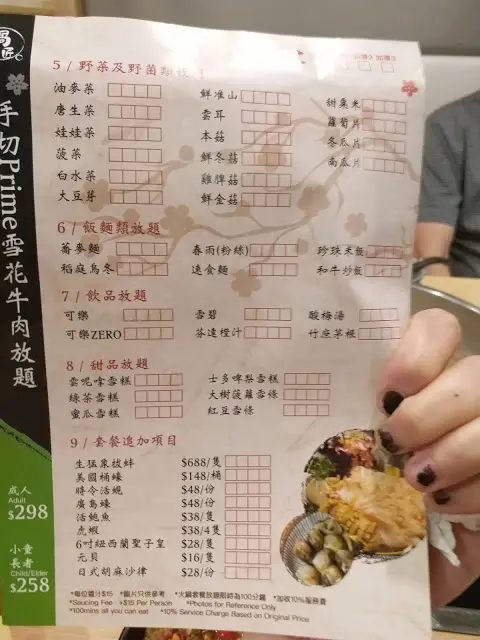 手切Prime雪花牛肉放題
成人
Adult
$298
小童
長者
Child/Elder
$258
5 / 野菜及野菌類放題
油麥菜
唐生菜
娃娃菜
菠菜
白水菜
大豆芽
鮮淮山
雲耳
本菇
鮮冬菇
雞髀菇
鮮金菇
甜粟米
蘿蔔片
冬瓜片
南瓜片
6 / 飯麵類放題
蕎麥麵
稻庭烏冬
春雨(粉絲)
速食麵
珍珠米飯
和牛炒飯
7 / 飲品放題
可樂
可樂ZERO
雪碧
芬達橙汁
酸梅湯
竹蔗茅根
8 / 甜品放題
雲呢拿雪糕
綠茶雪糕
蜜瓜雪糕
士多啤梨雪糕
大樹菠蘿雪條
紅豆雪條
9 / 套餐追加項目
生猛象拔蚌 $688/隻
美國桶蠔 $148/桶
時令活蜆 $48/份
廣島蠔 $48/份
活鮑魚 $38/隻
虎蝦 $38/4隻
6吋紐西蘭聖子皇 $28/隻
元貝 $16/隻
日式胡麻沙律 $28/份
*每位醬汁$15 *圖片只供參考 *火鍋套餐放題限時為100分鐘 *加收10%服務費
*Saucing Fee : $15 Per Person *Photos for Reference Only
*100mins all you can eat *10% Service Charge Based on Original Price